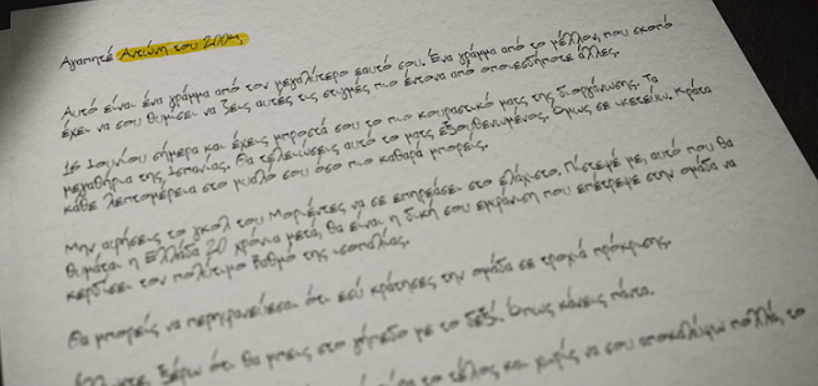 Αγαπητέ Αντώνη του 2004,
Αυτό είναι ένα γράμμα από τον μεγαλύτερο εαυτό σου. Ένα γράμμα από το μέλλον, που σκοπό
έχει να σου θυμίσει να ζεις αυτές τις στιγμές πιο έντονα από οποιεσδήποτε άλλες.
16 Ιουνίου σήμερα και έχεις μπροστά σου το πιο κουραστικό ματς της διοργάνωσης. Τα
μεγαθήρια της Ισπανίας. Θα τελειώσεις αυτό το ματς εξουθενωμένος. Όμως σε ικετεύω. Κράτα
κάθε λεπτομέρεια στο μυαλό σου όσο πιο καθαρά μπορείς.
Μην αφήσεις το γκολ του Μοριέντες να σε επηρεάσει στο ελάχιστο. Πίστεψέ με, αυτό που θα
θυμάται η Ελλάδα 20 χρόνια μετά, θα είναι η δική σου εμφάνιση που επέτρεψε στην ομάδα να
κερδίσει τον πολύτιμο βαθμό της ισοπαλίας.
Θα μπορείς να περηφανεύεσαι ότι εσύ κράτησες την ομάδα σε τροχιά πρόκρισης.
ξέρω ότι θα μπεις στο γήπεδο με το δεξί. Όπως κάνεις πάντα.
το τέλος και χωρίς να σου αποκαλύψω πολλά, το